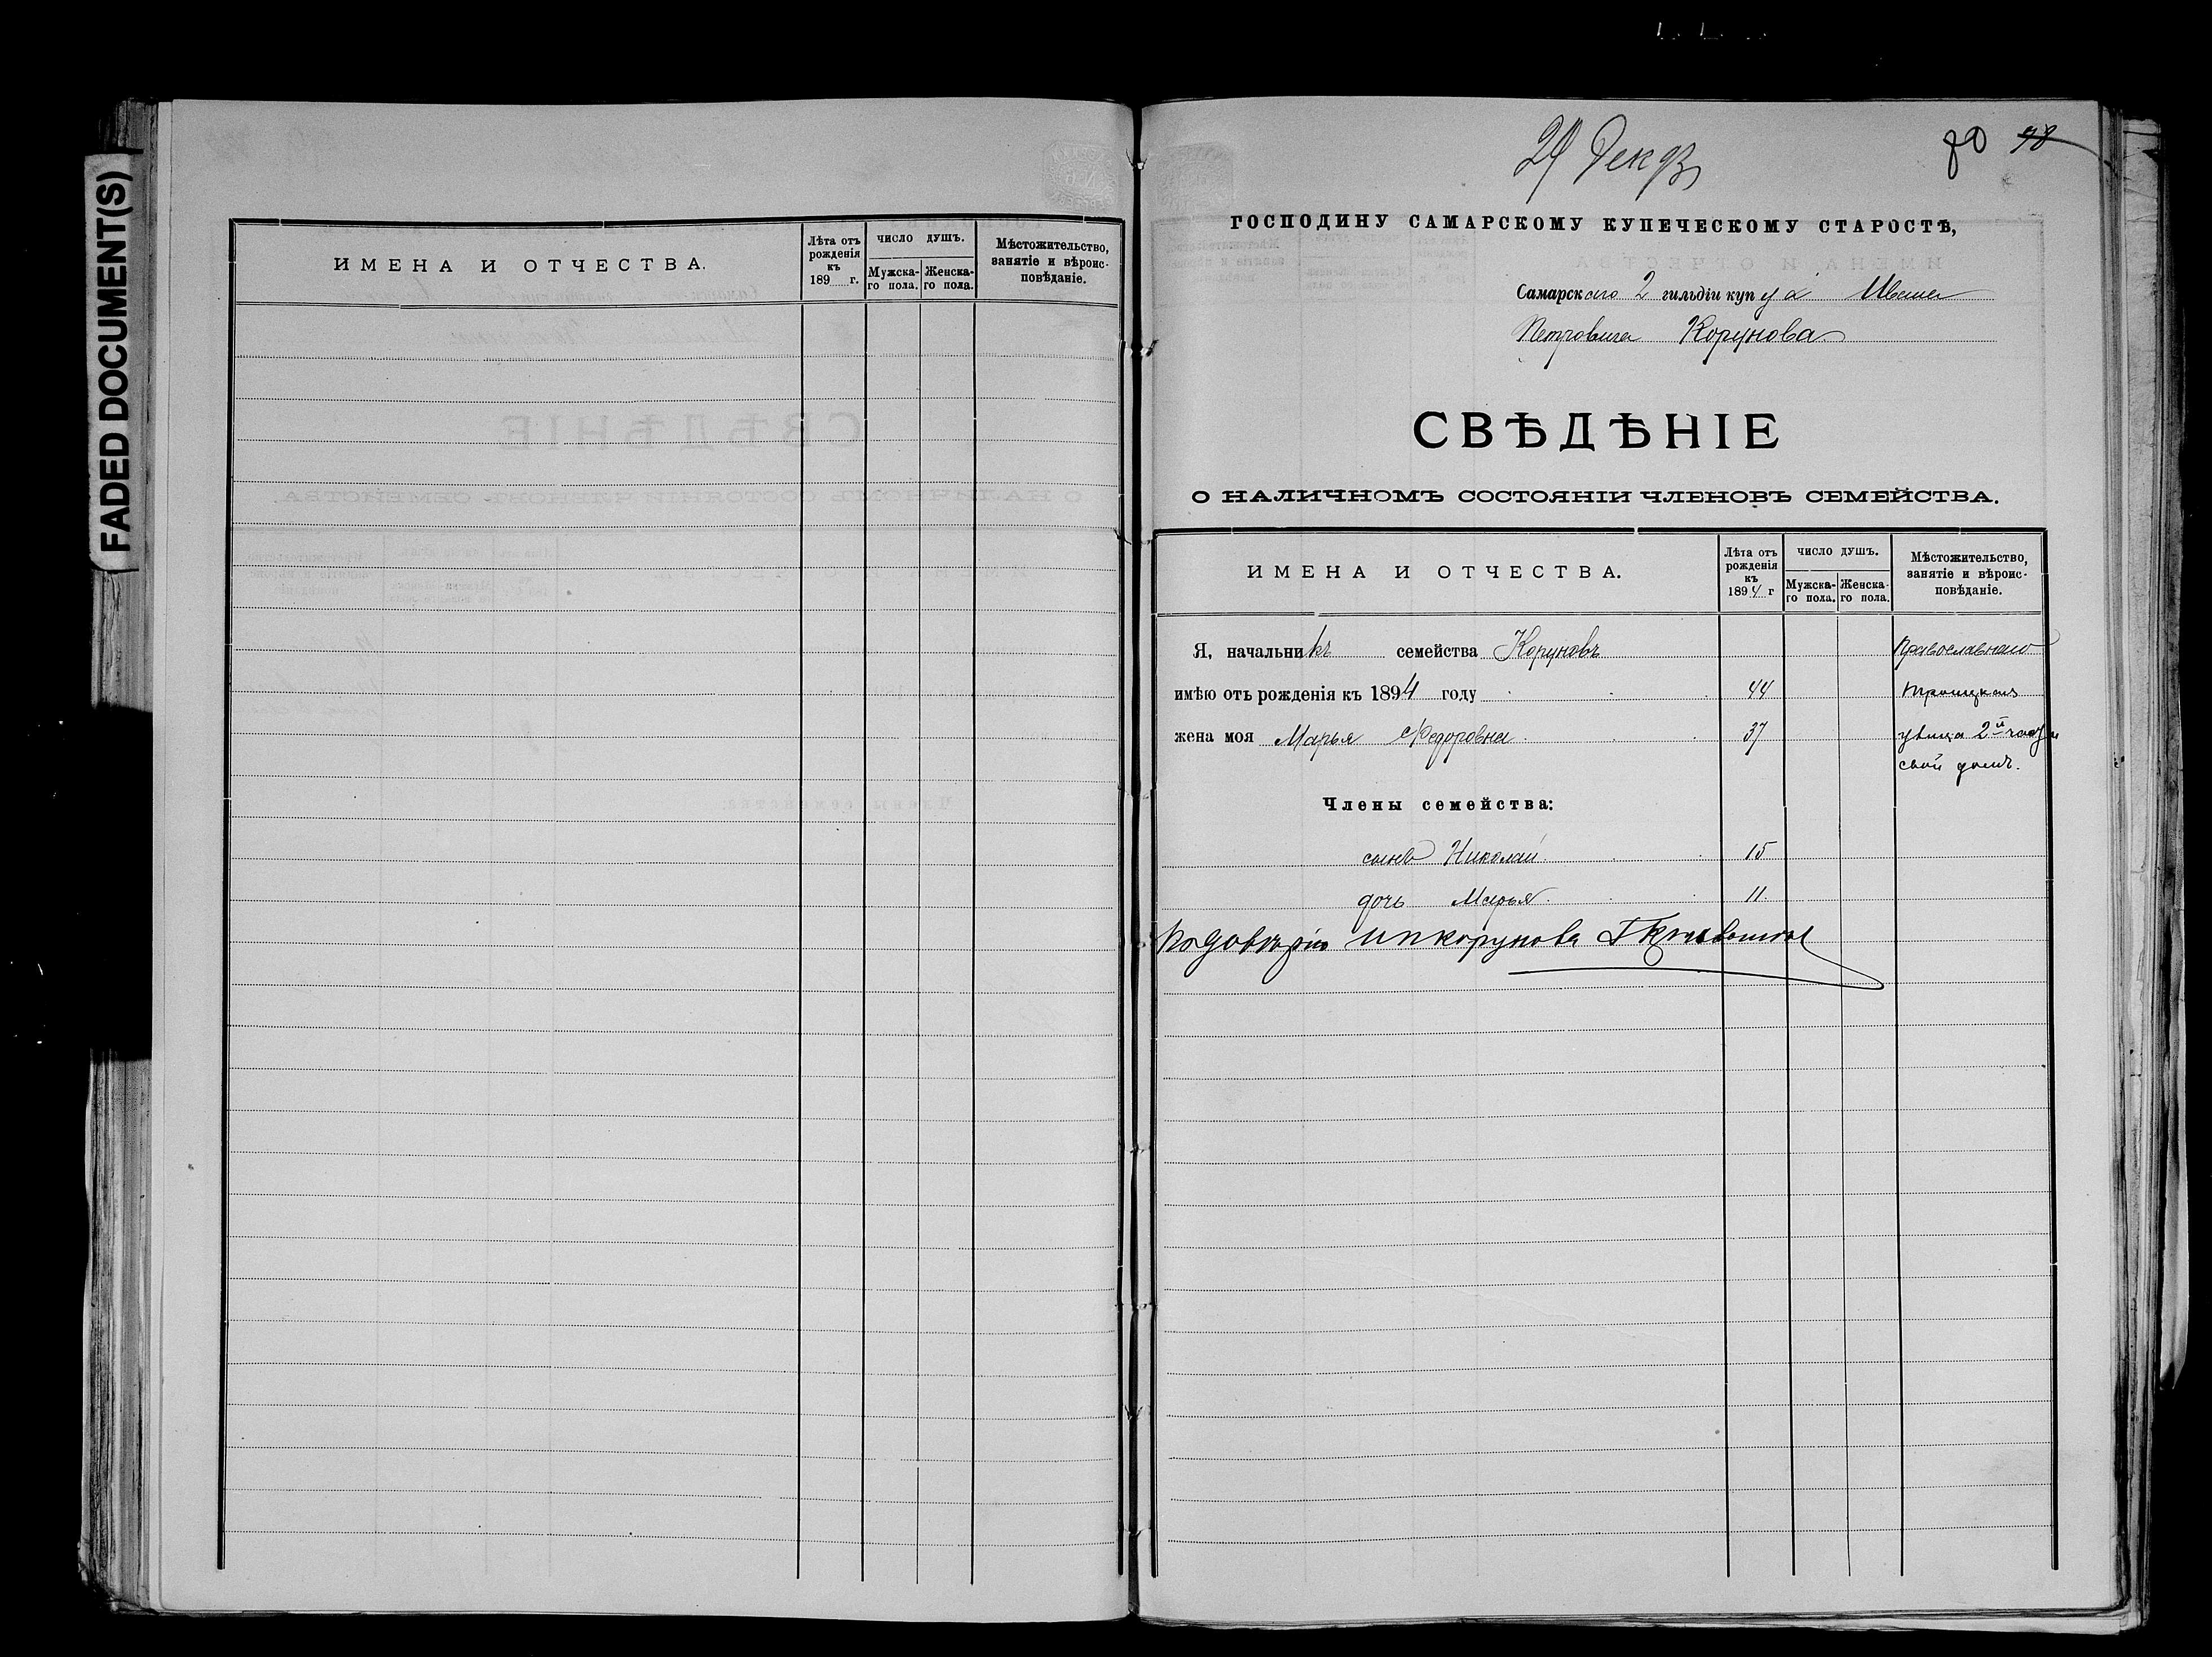 FADED DOCUMENT(S)
ИМЕНА И ОТЧЕСТВА.
Лѣта отъ рожденія къ 189 г.
число душъ.
Мужска-го пола.
Женска-го пола.
Мѣстожительство, занятіе и вѣроис-повѣданіе.
29 Дек 93
80 98
ГОСПОДИНУ САМАРСКОМУ КУПЕЧЕСКОМУ СТАРОСТѢ,
Самарскаго 2 гильдіи купца Ивана
Петровича Корунова
СВѢДѢНІЕ
О НАЛИЧНОМЪ СОСТОЯНІИ ЧЛЕНОВЪ СЕМЕЙСТВА.
ИМЕНА И ОТЧЕСТВА.
Лѣта отъ рожденія къ 1894 г
число душъ.
Мужска-го пола.
Женска-го пола.
Мѣстожительство, занятіе и вѣроис-повѣданіе.
Я, начальникъ семейства Коруновъ Православнаго
имѣю отъ рожденія къ 1894 году 44 Троицкая
жена моя Марья Федоровна 37 улица 2й части
свой домъ.
Члены семейства:
сынъ Николай 15
дочь Марья 11
По довѣрію И П Корунова